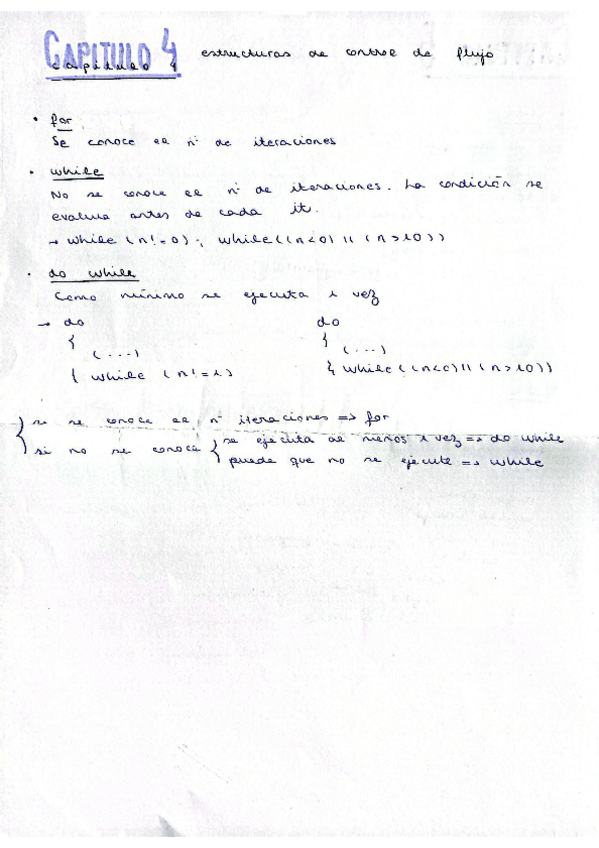 CAPITULO 4 estructuras de control de flujo
capitulo 4
• for
Se conoce el nº de iteraciones
• while
No se conoce el nº de iteraciones. La condición se
evalua antes de cada it.
→ while (n!=0); while((n<0) || (n>10))
• do while
Como mínimo se ejecuta 1 vez
→ do do
{ {
(...) (...)
{ while (n!=1) { while((n<0)||(n>10))
{ si se conoce el nº iteraciones => for
si no se conoce { se ejecuta al menos 1 vez => do while
puede que no se ejecute => while